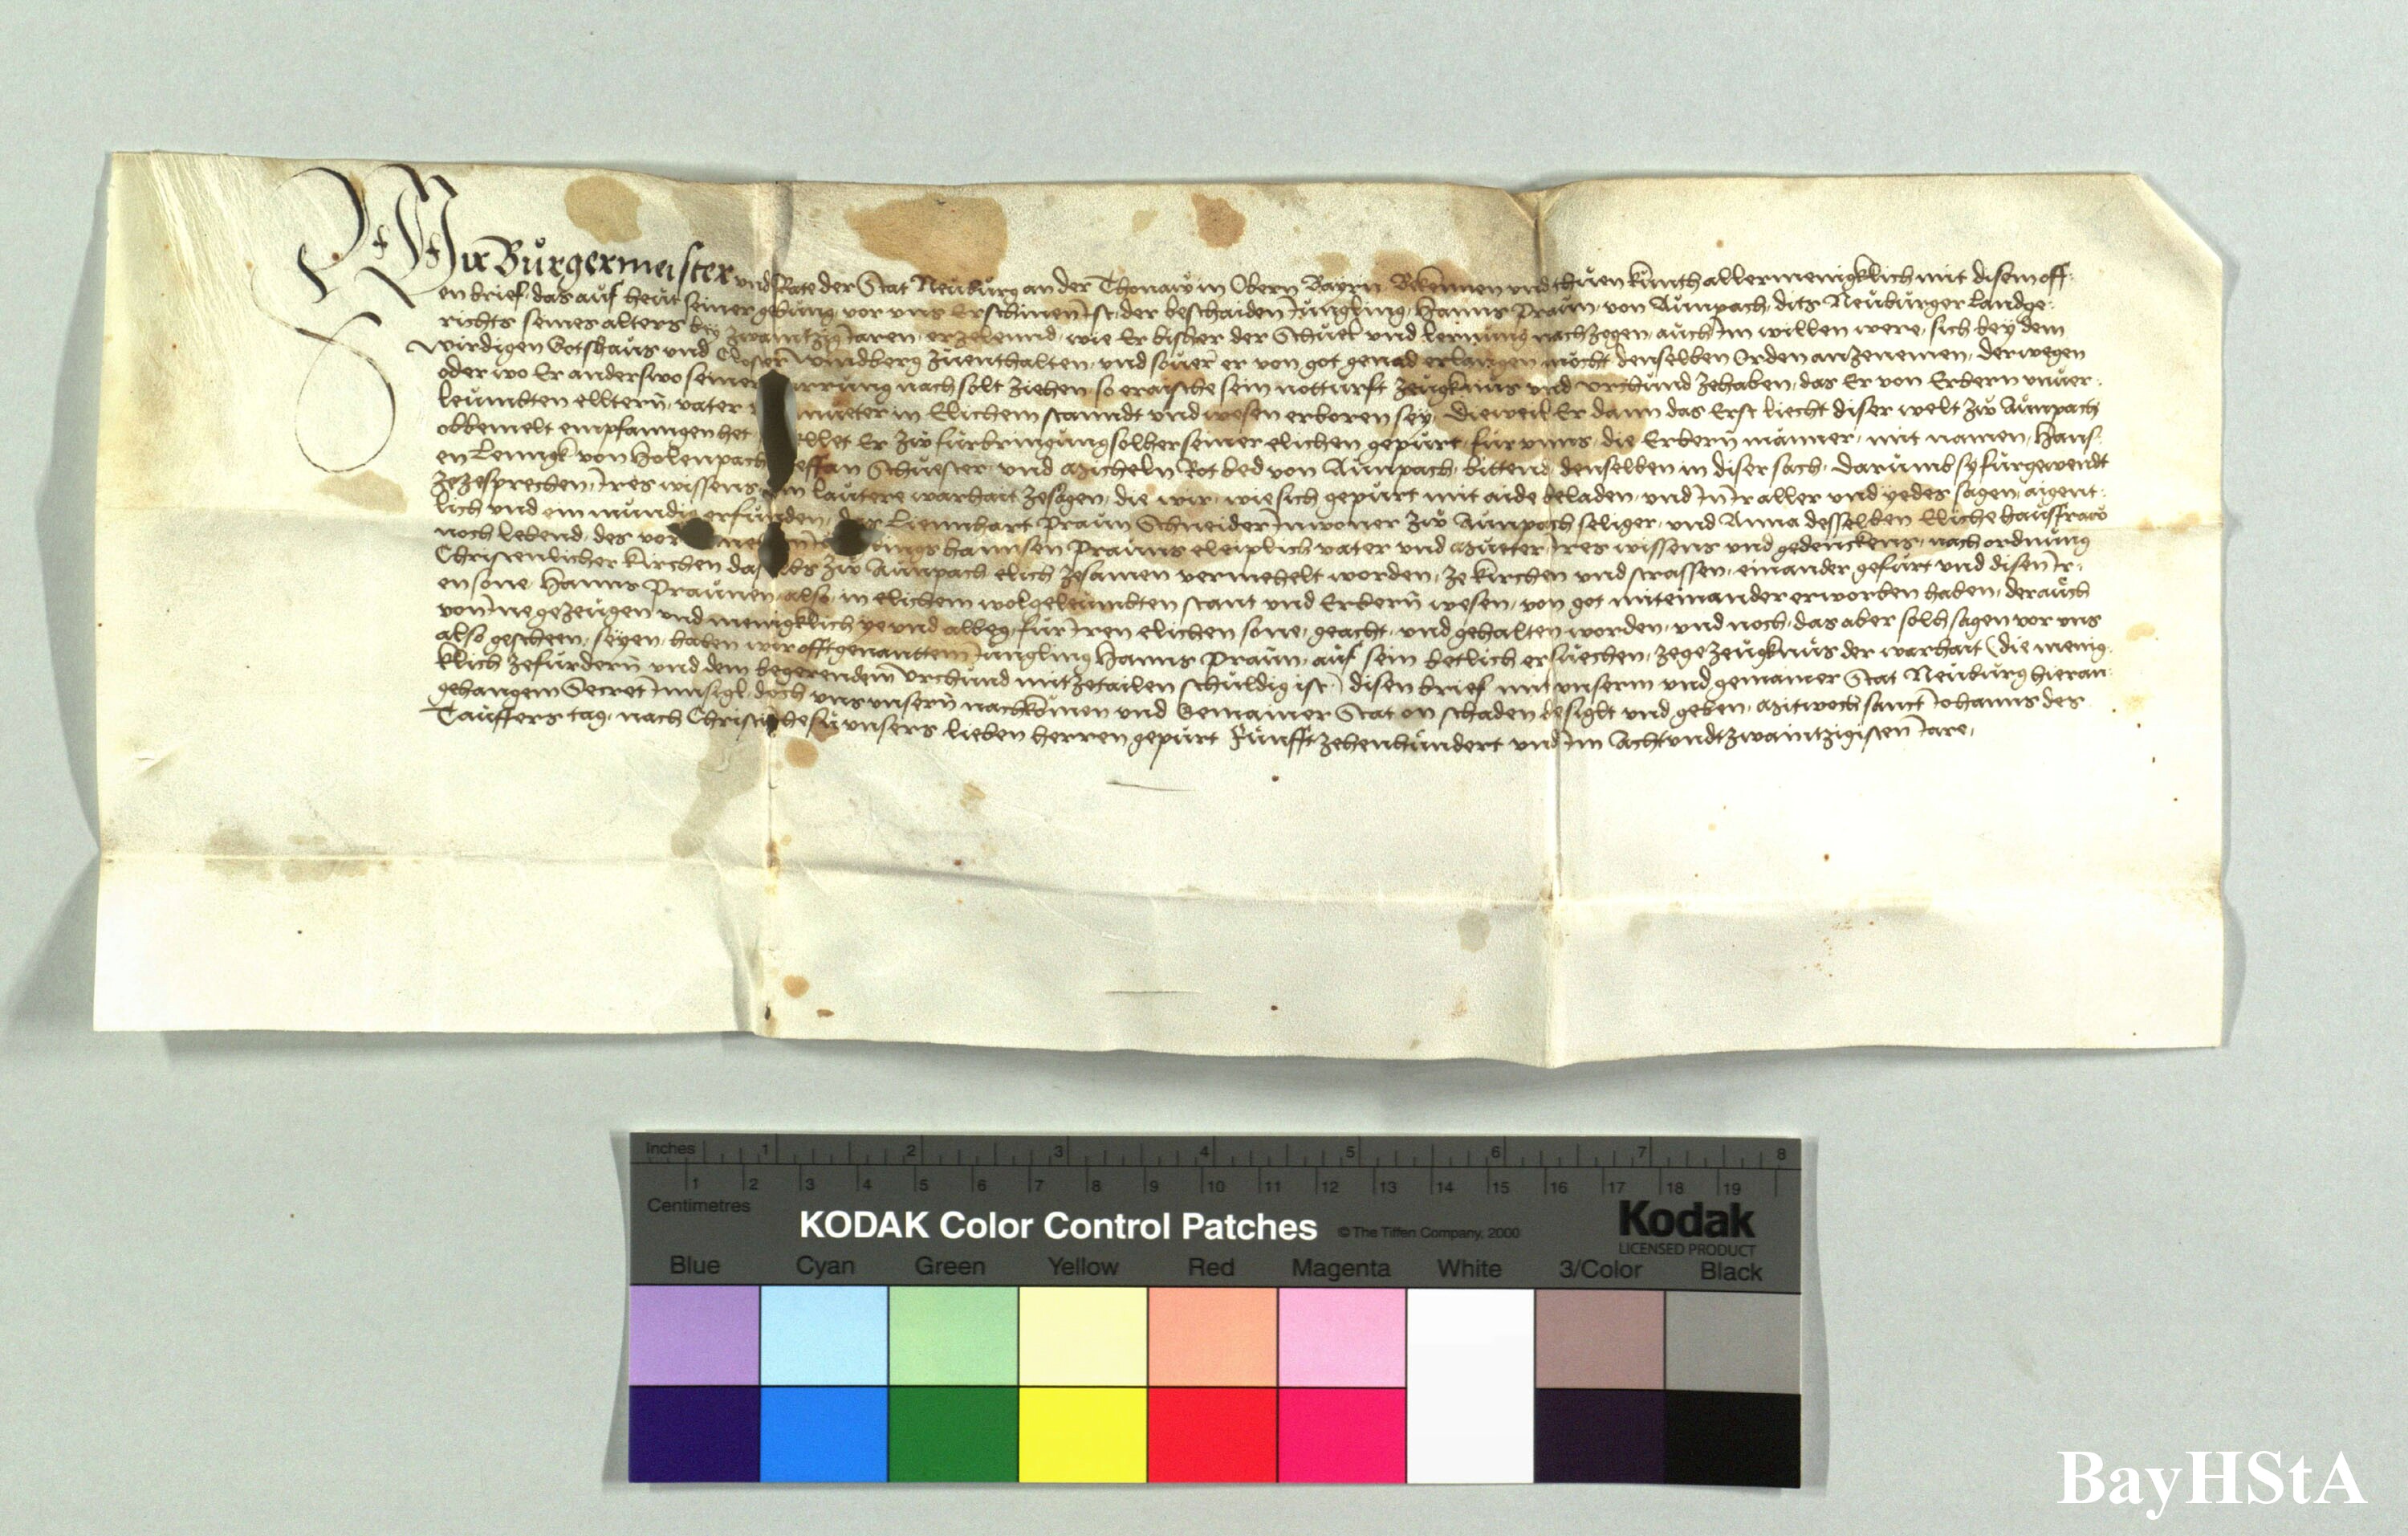 Wir Bürgermeister und Rate der Stat Neuburg an der Thonaw in Obern Bayrn Bekennen und thuen kunth allermenigklich mit disem off-
en brief, das auf heut seiner gebung vor uns Erschinen ist, der beschaiden Jüngling, Hanns Praun von Aunpach, dits Neuburger Landge-
richts seines alters bey zwaintzig Jaren, erzelennd, wie Er bisher der Schuel und lernung nachzogen, auch Im willen were, sich bey dem
wirdigen Gotshaus und Closter Windberg zuenthalten, und souer er von got genad erlangen möcht denselben Orden anzenemen, derwegen
oder wo Er anderswo seiner narrung nach solt ziehen, so eraische sein notturft zeugknus und urchund zehaben, das Er von Erbern unuer-
leumbten elltern, vater mueter in Elichem standt und wesen erboren sey, Dieweil Er dann das Erst liecht diser welt zw Aunpach
obbemelt empfanngen het, stellet Er zw fürbringung solher seiner elichen gepurt, für unns, die Erbern männer, mit namen, Hans-
en Lenngk von Holenpach, Steffan Schuester, und Micheln Rot bed von Aunpach, bittend, denselben in diser sach, Darumb sy fürgewendt
zezesprechen, Ires wissens ein lautere warhait zesagen, die wir, wie sich gepürt mit aide beladen, und In Ir aller und yedes sagen, aigent-
lich und ein mundig erfunden, das Liennhart Praun Schneider Inwoner zw Aunpach seliger, und Anna desselben Eliche hausfraw
noch lebend, des vor Jünglings hannsen Prauns eleiplich vater und Mueter, Ires wissens und gedenckens, nach ordnung
Christenlicher kirchen daselbs zw Aunpach elich zesamen vermehelt worden, ze kirchen und strassen, einander gefürt und disen Ir-
en sone Hanns Praunen, also in elichem wolgeleumbten stant und Erbern wesen, von got miteinander erworben haben, der auch
von Ine gezeugen und menigklich ye und albeg, für Iren elichen sone, geacht, und gehalten worden, und noch, das aber solh sagen vor uns
also gescheen, seyen, haben wir offtgenanttem Jüngling Hanns Praun, auf sein betlich ersuechen, zegezeugknus der warhait (die menig-
klich zefürdern und dem begerendem urchund mitzetailen schuldig ist) disen brief mit unserm und gemainer Stat Neuburg hieran-
gehangem Secret Innsigl, doch uns unsern nachkomen und Gemainer Stat on schaden besiglt und geben, Mitwoch sanct Johanns des
Tauffers tag, nach Christi Jhesu unsers lieben herren gepurt Fünfftzehenhundert und Im Achtundtzwaintzigisten Jare,
Inches 1 2 3 4 5 6 7 8
1 2 3 4 5 6 7 8 9 10 11 12 13 14 15 16 17 18 19
Centimetres
KODAK Color Control Patches © The Tiffen Company, 2000 Kodak
LICENSED PRODUCT
Blue Cyan Green Yellow Red Magenta White 3/Color Black
BayHStA